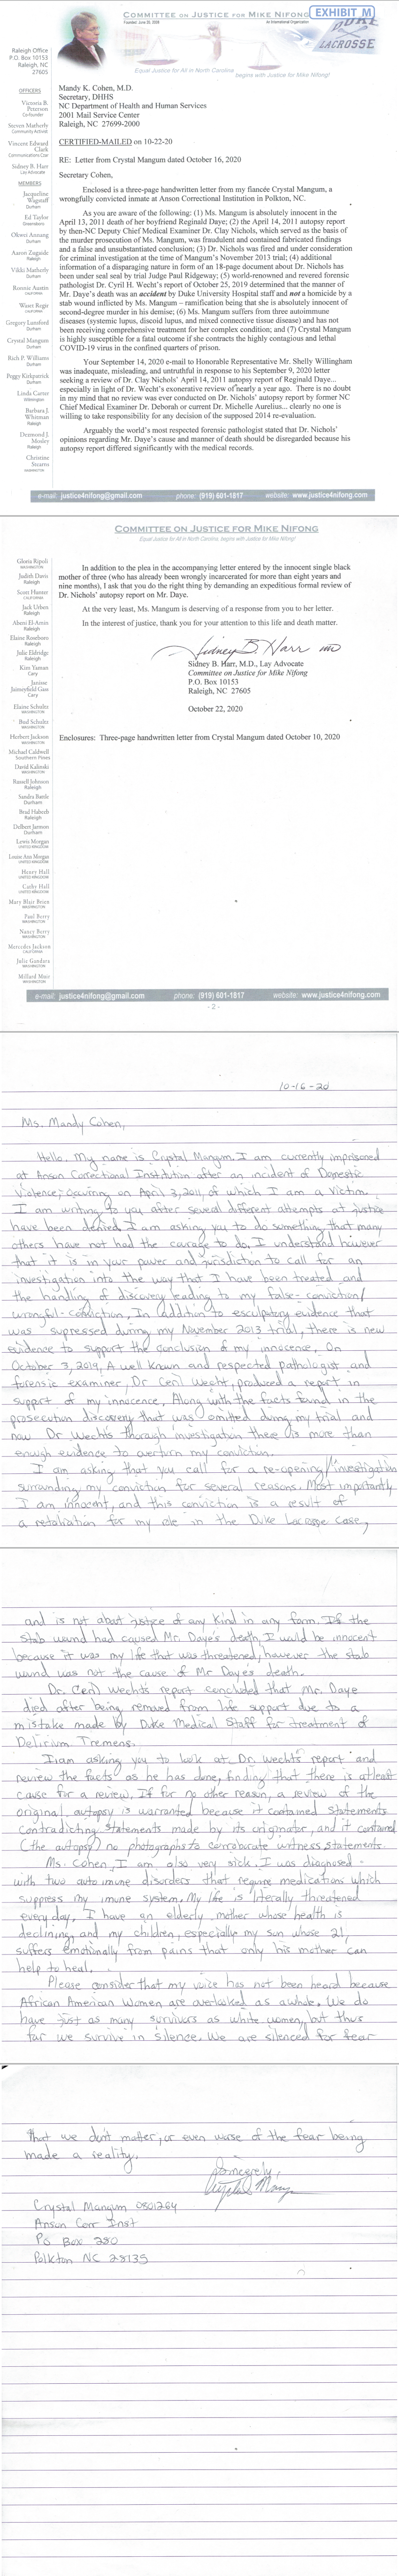 COMMITTEE ON JUSTICE FOR MIKE NIFONG
EXHIBIT M
Founded: June 20, 2008
An International Organization
DUKE
LACROSSE
Equal Justice for All in North Carolina
begins with Justice for Mike Nifong!
Raleigh Office
P.O. Box 10153
Raleigh, NC
27605
OFFICERS
Victoria B.
Peterson
Co-founder
Steven Matherly
Community Activist
Vincent Edward
Clark
Communications Czar
Sidney B. Harr
Lay Advocate
MEMBERS
Jacqueline
Wagstaff
Durham
Ed Taylor
Greensboro
Okwei Annang
Durham
Aaron Zugaide
Raleigh
Vikki Matherly
Durham
Ronnie Austin
CALIFORNIA
Waset Regir
CALIFORNIA
Gregory Lunsford
Durham
Crystal Mangum
Durham
Rich P. Williams
Durham
Peggy Kirkpatrick
Durham
Linda Carter
Wilmington
Barbara J.
Whitman
Raleigh
Desmond J.
Mosley
Raleigh
Christine
Stearns
WASHINGTON
Mandy K. Cohen, M.D.
Secretary, DHHS
NC Department of Health and Human Services
2001 Mail Service Center
Raleigh, NC 27699-2000
CERTIFIED-MAILED on 10-22-20
RE: Letter from Crystal Mangum dated October 16, 2020
Secretary Cohen,
Enclosed is a three-page handwritten letter from my fiancée Crystal Mangum, a
wrongfully convicted inmate at Anson Correctional Institution in Polkton, NC.
As you are aware of the following: (1) Ms. Mangum is absolutely innocent in the
April 13, 2011 death of her boyfriend Reginald Daye; (2) the April 14, 2011 autopsy report
by then-NC Deputy Chief Medical Examiner Dr. Clay Nichols, which served as the basis of
the murder prosecution of Ms. Mangum, was fraudulent and contained fabricated findings
and a false and unsubstantiated conclusion; (3) Dr. Nichols was fired and under consideration
for criminal investigation at the time of Mangum's November 2013 trial; (4) additional
information of a disparaging nature in form of an 18-page document about Dr. Nichols has
been under seal by trial Judge Paul Ridgeway; (5) world-renowned and revered forensic
pathologist Dr. Cyril H. Wecht's report of October 25, 2019 determined that the manner
of Mr. Daye's death was an accident by Duke University Hospital staff and not a homicide by a
stab wound inflicted by Ms. Mangum – ramification being that she is absolutely innocent of
second-degree murder in his demise; (6) Ms. Mangum suffers from three autoimmune
diseases (systemic lupus, discoid lupus, and mixed connective tissue disease) and has not
been receiving comprehensive treatment for her complex condition; and (7) Crystal Mangum
is highly susceptible for a fatal outcome if she contracts the highly contagious and lethal
COVID-19 virus in the confined quarters of prison.
Your September 14, 2020 e-mail to Honorable Representative Mr. Shelly Willingham
was inadequate, misleading, and untruthful in response to his September 9, 2020 letter
seeking a review of Dr. Clay Nichols' April 14, 2011 autopsy report of Reginald Daye...
especially in light of Dr. Wecht's exonerative review of nearly a year ago. There is no doubt
in my mind that no review was ever conducted on Dr. Nichols' autopsy report by former NC
Chief Medical Examiner Dr. Deborah or current Dr. Michelle Aurelius... clearly no one is
willing to take responsibility for any decision of the supposed 2014 re-evaluation.
Arguably the world's most respected forensic pathologist stated that Dr. Nichols'
opinions regarding Mr. Daye's cause and manner of death should be disregarded because his
autopsy report differed significantly with the medical records.
e-mail: justice4nifong@gmail.com phone: (919) 601-1817 website: www.justice4nifong.com
COMMITTEE ON JUSTICE FOR MIKE NIFONG
Equal Justice for All in North Carolina, begins with Justice for Mike Nifong!
Gloria Ripoli
WASHINGTON
Judith Davis
Raleigh
Scott Hunter
CALIFORNIA
Jack Urben
Raleigh
Abeni El-Amin
Raleigh
Elaine Roseboro
Raleigh
Julie Eldridge
Raleigh
Kim Yaman
Cary
Janisse
Jaimeyfield Gass
Cary
Elaine Schultz
WASHINGTON
Bud Schultz
WASHINGTON
Herbert Jackson
WASHINGTON
Michael Caldwell
Southern Pines
David Kalinski
WASHINGTON
Russell Johnson
Raleigh
Sandra Battle
Durham
Brad Haheeb
Raleigh
Delbert Jarmon
Durham
Lewis Morgan
UNITED KINGDOM
Louise Ann Morgan
UNITED KINGDOM
Henry Hall
UNITED KINGDOM
Cathy Hall
UNITED KINGDOM
Mary Blair Brien
WASHINGTON
Paul Berry
WASHINGTON
Nancy Berry
WASHINGTON
Mercedes Jackson
CALIFORNIA
Julie Gandara
WASHINGTON
Millard Muir
WASHINGTON
In addition to the plea in the accompanying letter entered by the innocent single black
mother of three (who has already been wrongly incarcerated for more than eight years and
nine months), I ask that you do the right thing by demanding an expeditious formal review of
Dr. Nichols' autopsy report on Mr. Daye.
At the very least, Ms. Mangum is deserving of a response from you to her letter.
In the interest of justice, thank you for your attention to this life and death matter.
Sidney B Harr MD
Sidney B. Harr, M.D., Lay Advocate
Committee on Justice for Mike Nifong
P.O. Box 10153
Raleigh, NC 27605
October 22, 2020
Enclosures: Three-page handwritten letter from Crystal Mangum dated October 10, 2020
e-mail: justice4nifong@gmail.com phone: (919) 601-1817 website: www.justice4nifong.com
- 2 -
10-16-20
Ms. Mandy Cohen,
Hello. My name is Crystal Mangum. I am currently imprisoned
at Anson Correctional Institution after an incident of Domestic
Violence; occuring on April 3, 2011, of which I am a victim.
I am writing to you after several different attempts at justice
have been denied. I am asking you to do something that many
others have not had the courage to do. I understand however
that it is in your power and jurisdiction to call for an
investigation into the way that I have been treated and
the handling of discovery leading to my false-conviction/
wrongful-conviction. In addition to esculpatory evidence that
was supressed during my November 2013 trial, there is new
evidence to support the conclusion of my innocence. On
October 3, 2019, A well known and respected pathologist and
forensic examiner, Dr Ceril Wecht, produced a report in
support of my innocence. Along with the facts found in the
prosecution discovery that was omitted during my trial and
now Dr Wechts thorough investigation there is more than
enough evidence to overturn my conviction.
I am asking that you call for a re-opening/investigation
surrounding my conviction for several reasons. Most importantly
I am innocent, and this conviction is a result of
a retaliation for my role in the Duke Lacrosse Case,
and is not about justice of any kind in any form. If the
stab wound had caused Mr. Daye's death, I would be innocent
because it was my life that was threatened, however the stab
wound was not the cause of Mr Daye's death.
Dr. Ceril Wecht's report concluded that Mr. Daye
died after being removed from life support due to a
mistake made by Duke Medical Staff for treatment of
Delirium Tremens.
I am asking you to look at Dr. Wecht's report and
review the facts as he has done, finding that there is atleast
cause for a review. If for no other reason, a review of the
original autopsy is warranted because it contained statements
contradicting statements made by its originator, and it contained
(the autopsy) no photographs to corroborate witness statements.
Ms. Cohen, I am also very sick. I was diagnosed
with two auto immune disorders that require medications which
suppress my imune system. My life is literally threatened
every day. I have an elderly mother whose health is
declining and my children, especially my son whose 21,
suffers emotionally from pains that only his mother can
help to heal.
Please consider that my voice has not been heard because
African American Women are overlooked as a whole. We do
have just as many survivors as white women, but thus
far we survive in silence. We are silenced for fear
that we don't matter; or even worse of the fear being
made a reality.
Sincerely,
Crystal Mangum
Crystal Mangum 0801264
Anson Corr Inst
Po Box 280
Polkton NC 28135